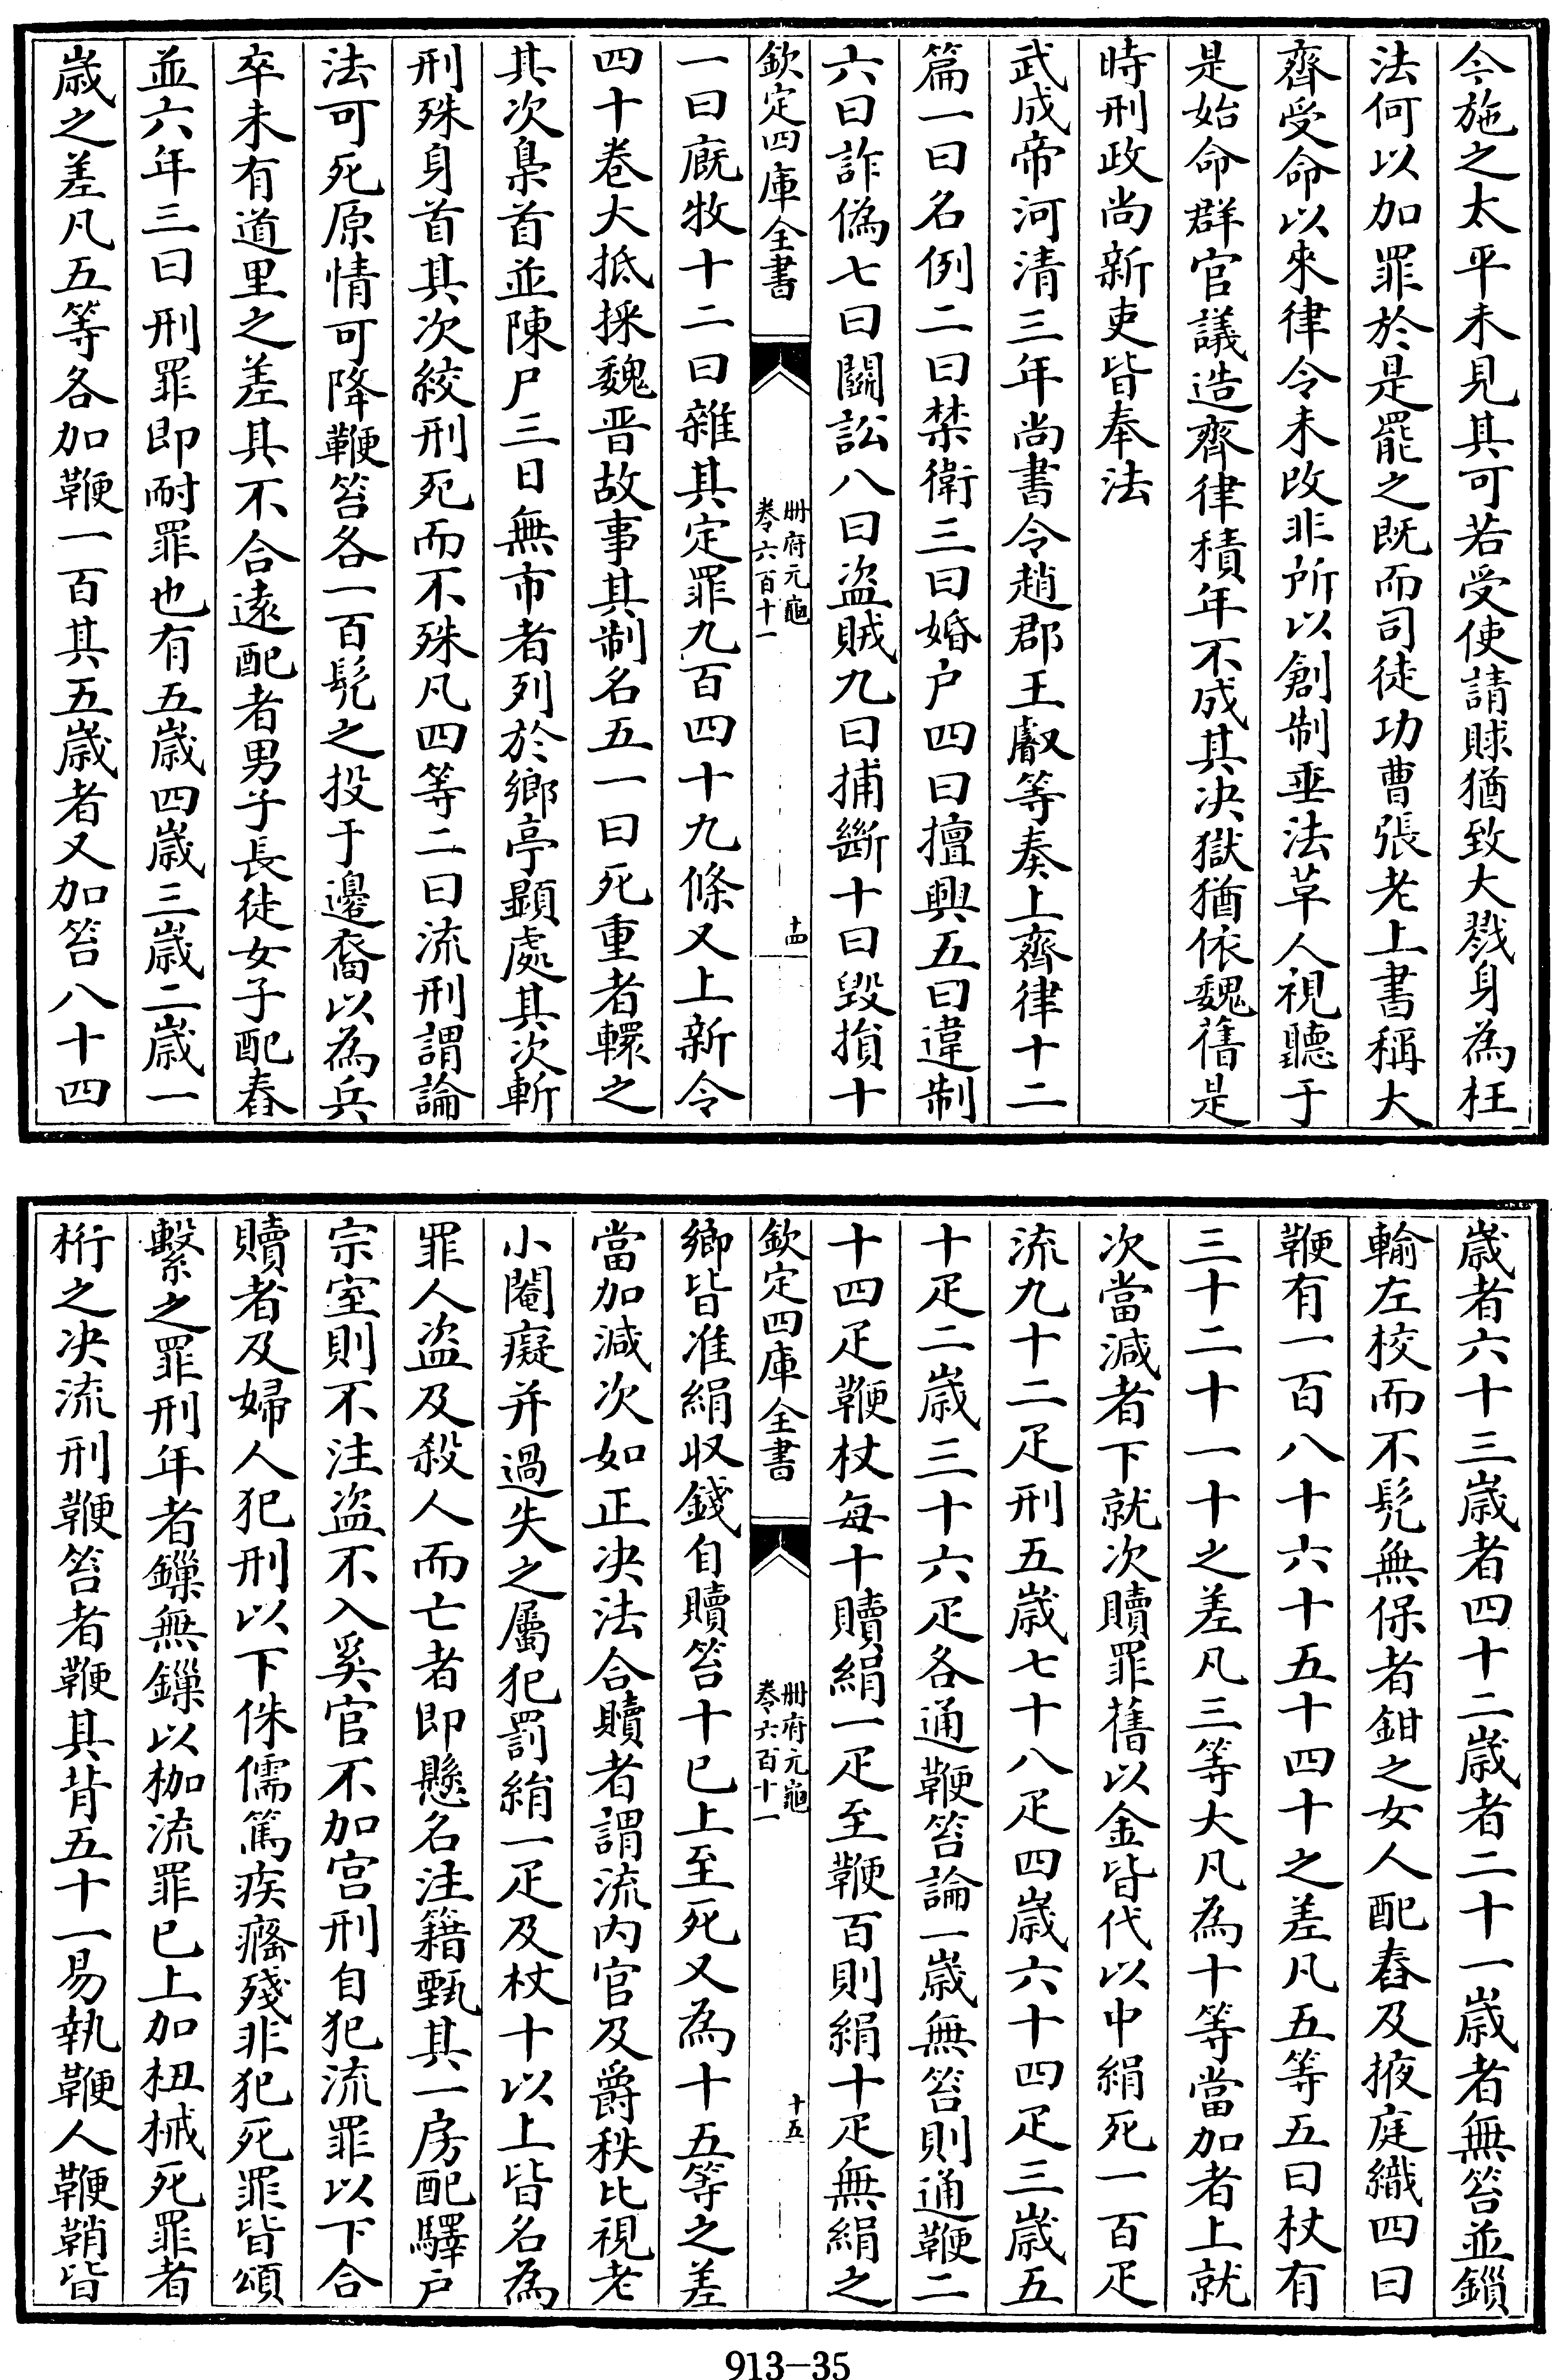 今施之太平未見其可若受使請賕猶致大戮身為枉
法何以加罪於是罷之既而司徒功曹張老上書稱大
齊受命以來律令未改非所以創制垂法革人視聽于
是始命群官議造齊律積年不成其决獄猶依魏舊是
時刑政尚新吏皆奉法
武成帝河清三年尚書令趙郡王叡等奏上齊律十二
篇一曰名例二曰禁衛三曰婚户四曰擅興五曰違制
六曰詐偽七曰鬭訟八曰盗賊九曰捕斷十曰毀損十
欽定四庫全書
册府元龜
卷六百十一
十四
一曰廐牧十二曰雜其定罪九百四十九條又上新令
四十卷大抵採魏晋故事其制名五一曰死重者轘之
其次梟首並陳尸三日無市者列於鄉亭顯處其次斬
刑殊身首其次絞刑死而不殊凡四等二曰流刑謂論
法可死原情可降鞭笞各一百髠之投于邊裔以為兵
卒未有道里之差其不合遠配者男子長徒女子配舂
並六年三曰刑罪即耐罪也有五歲四歲三歲二歲一
歲之差凡五等各加鞭一百其五歲者又加笞八十四
歲者六十三歲者四十二歲者二十一歲者無笞並鎻
輸左校而不髠無保者鉗之女人配舂及掖庭織四曰
鞭有一百八十六十五十四十之差凡五等五曰杖有
三十二十一十之差凡三等大凡為十等當加者上就
次當減者下就次贖罪舊以金皆代以中絹死一百疋
流九十二疋刑五歲七十八疋四歲六十四疋三歲五
十疋二歲三十六疋各通鞭笞論一歲無笞則通鞭二
十四疋鞭杖每十贖絹一疋至鞭百則絹十疋無絹之
欽定四庫全書
册府元龜
卷六百十一
十五
鄉皆准絹収錢自贖笞十巳上至死又為十五等之差
當加減次如正决法合贖者謂流内官及爵秩比視老
小閹癡并過失之屬犯罰絹一疋及杖十以上皆名為
罪人盗及殺人而亡者即懸名注籍甄其一房配驛户
宗室則不注盗不入奚官不加宫刑自犯流罪以下合
贖者及婦人犯刑以下侏儒篤疾癃殘非犯死罪皆頌
繫之罪刑年者鏁無鏁以枷流罪巳上加杻械死罪者
桁之决流刑鞭笞者鞭其背五十一易執鞭人鞭鞘皆
913-35